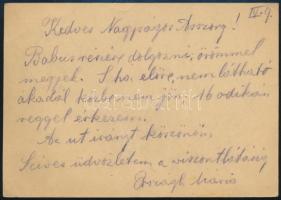 IV. 9.
Kedves Nagypazsi Asszony!
Babus részére dolgozni, örömmel
megyek. S ha előre nem látható
akadál közben nem jön, 16 odikán
reggel érkezem.
Az ut irányt köszönöm.
Szives üdvözletem a viszontlátásig
Országh Mária